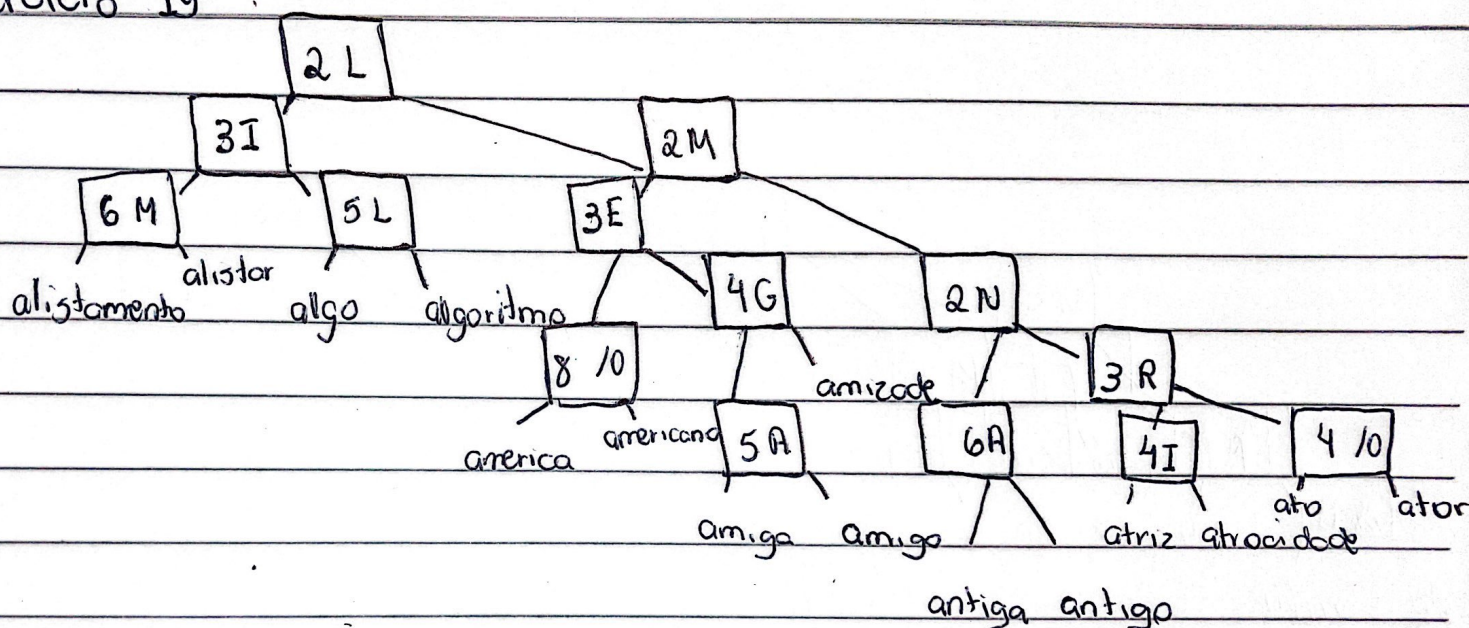 19
2 L
3I 2M
6 M 5 L 3E
alistamento alistar algo algoritmo 4G 2N
8 /0 amizade 3 R
america americano 5 A 6A 4I 4 /0
amiga amigo atriz atrocidade ato ator
antiga antigo